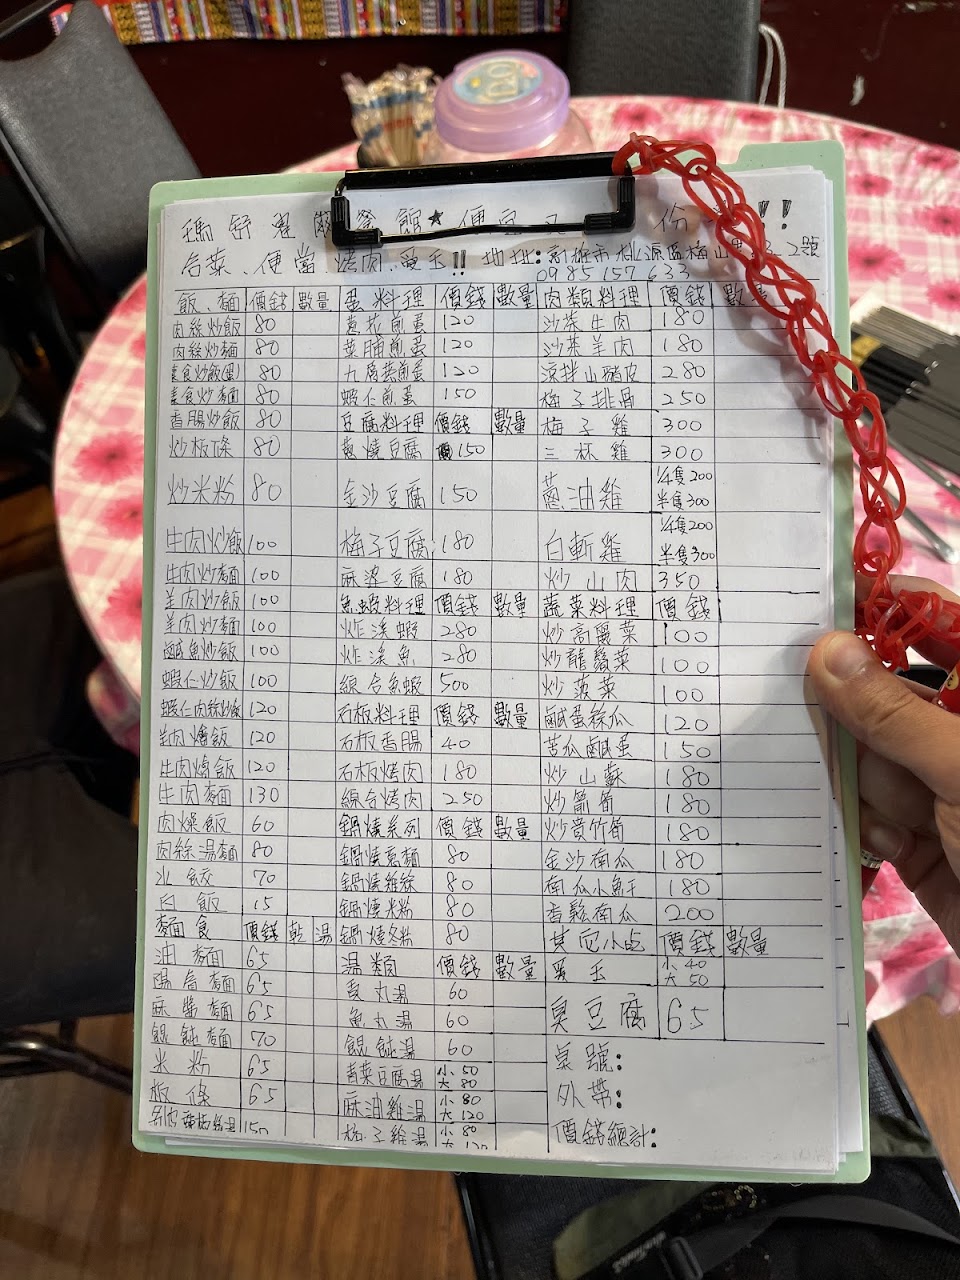 瑪舒霓爾餐館★便宜又 份 !!
合菜、便當、烤肉、愛玉!! 地址:高雄市桃源區梅山 2號
0985157633
飯、麵 價錢 數量 蛋料理 價錢 數量 肉類料理 價錢 數量
肉絲炒飯 80 蔥花煎蛋 120 沙茶牛肉 180
肉絲炒麵 80 菜脯煎蛋 120 沙茶羊肉 180
素食炒飯(蛋) 80 九層菜煎蛋 120 涼拌山豬皮 280
素食炒麵 80 蝦仁煎蛋 150 梅子排骨 250
香腸炒飯 80 豆腐料理 價錢 數量 梅子雞 300
炒板條 80 蔥燒豆腐 150 三杯雞 300
炒米粉 80 金沙豆腐 150 蔥油雞 1/4隻200 半隻300
牛肉炒飯 100 梅子豆腐 180 白斬雞 1/4隻200 半隻300
牛肉炒麵 100 麻婆豆腐 180 炒山肉 350
羊肉炒飯 100 魚蝦料理 價錢 數量 蔬菜料理 價錢
羊肉炒麵 100 炸溪蝦 280 炒高麗菜 100
鹹魚炒飯 100 炸溪魚 280 炒龍鬚菜 100
蝦仁炒飯 100 綜合魚蝦 500 炒菠菜 100
蝦仁肉絲炒飯 120 石板料理 價錢 數量 鹹蛋絲瓜 120
羊肉燴飯 120 石板香腸 40 苦瓜鹹蛋 150
牛肉燴飯 120 石板烤肉 180 炒山蘇 180
牛肉麵 130 綜合烤肉 250 炒箭筍 180
肉燥飯 60 鍋燒系列 價錢 數量 炒貴竹筍 180
肉絲湯麵 80 鍋燒意麵 80 金沙南瓜 180
水餃 70 鍋燒雞絲 80 南瓜小魚干 180
白飯 15 鍋燒米粉 80 香鬆南瓜 200
麵食 價錢 乾 湯 鍋燒冬粉 80 其它小吃 價錢 數量
油麵 65 湯類 價錢 數量 愛玉 小40 大50
陽春麵 65 貢丸湯 60 臭豆腐 65
麻醬麵 65 魚丸湯 60
餛飩麵 70 餛飩湯 60 桌號:
米粉 65 青菜豆腐湯 小50 大80 外帶:
板條 65 麻油雞湯 小80 大120 價錢總計:
150 梅子雞湯 小80 大120